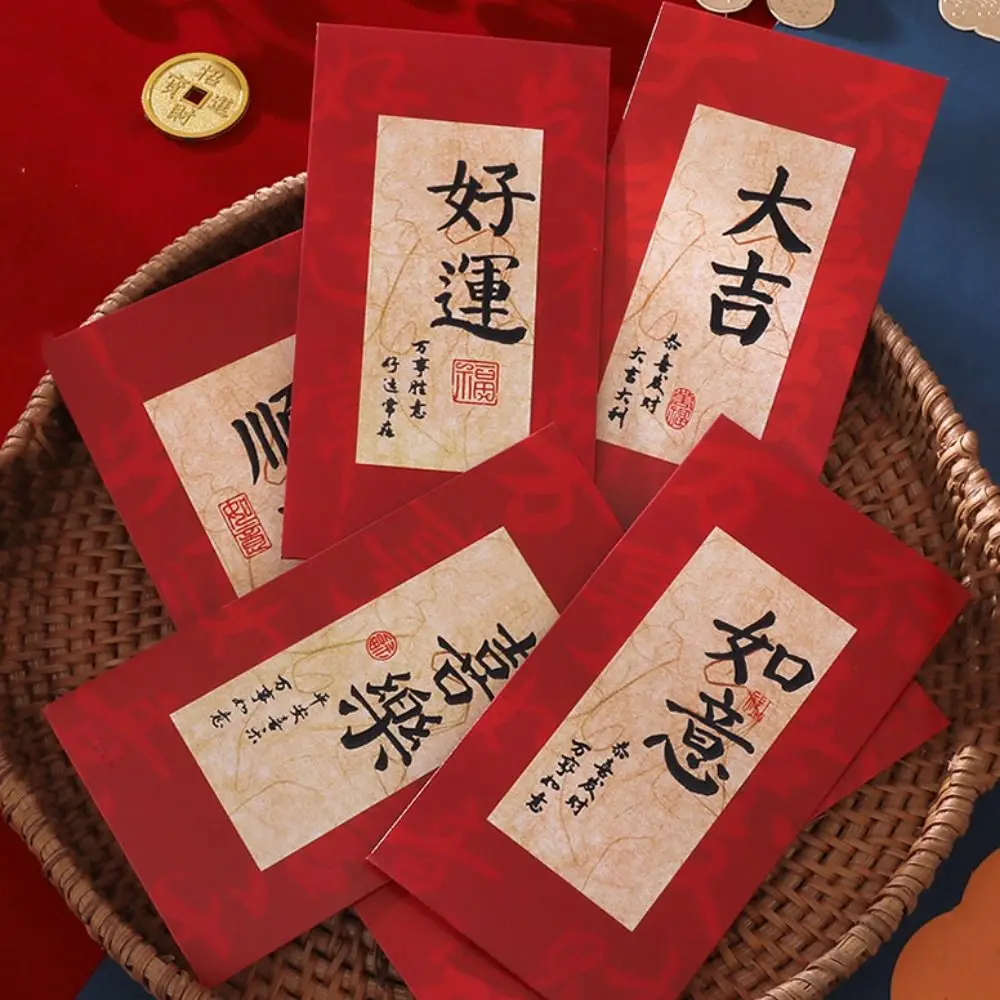 招進寶財
好運
万事胜意
好运常在
福
大吉
恭喜发财
大吉大利
順
喜樂
平安喜乐
万事如意
如意
恭喜发财
万事如意